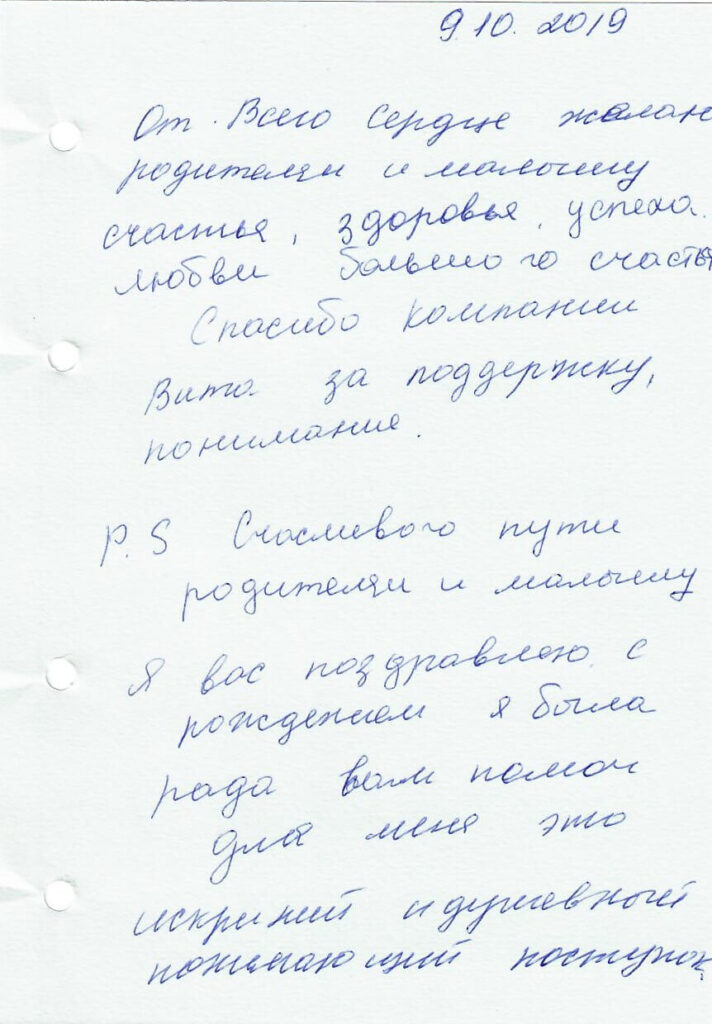 9.10. 2019
От Всего Сердце желаю
родителям и малышу
счастья, здоровья, успеха.
любви большого счастья
Спасибо компании
Вита за поддержку,
понимание.
P.S Счасливого пути
родителям и малышу
Я вас поздравлою с
рождением я была
рада вам помоч
для меня это
искриний и душевный
поступок